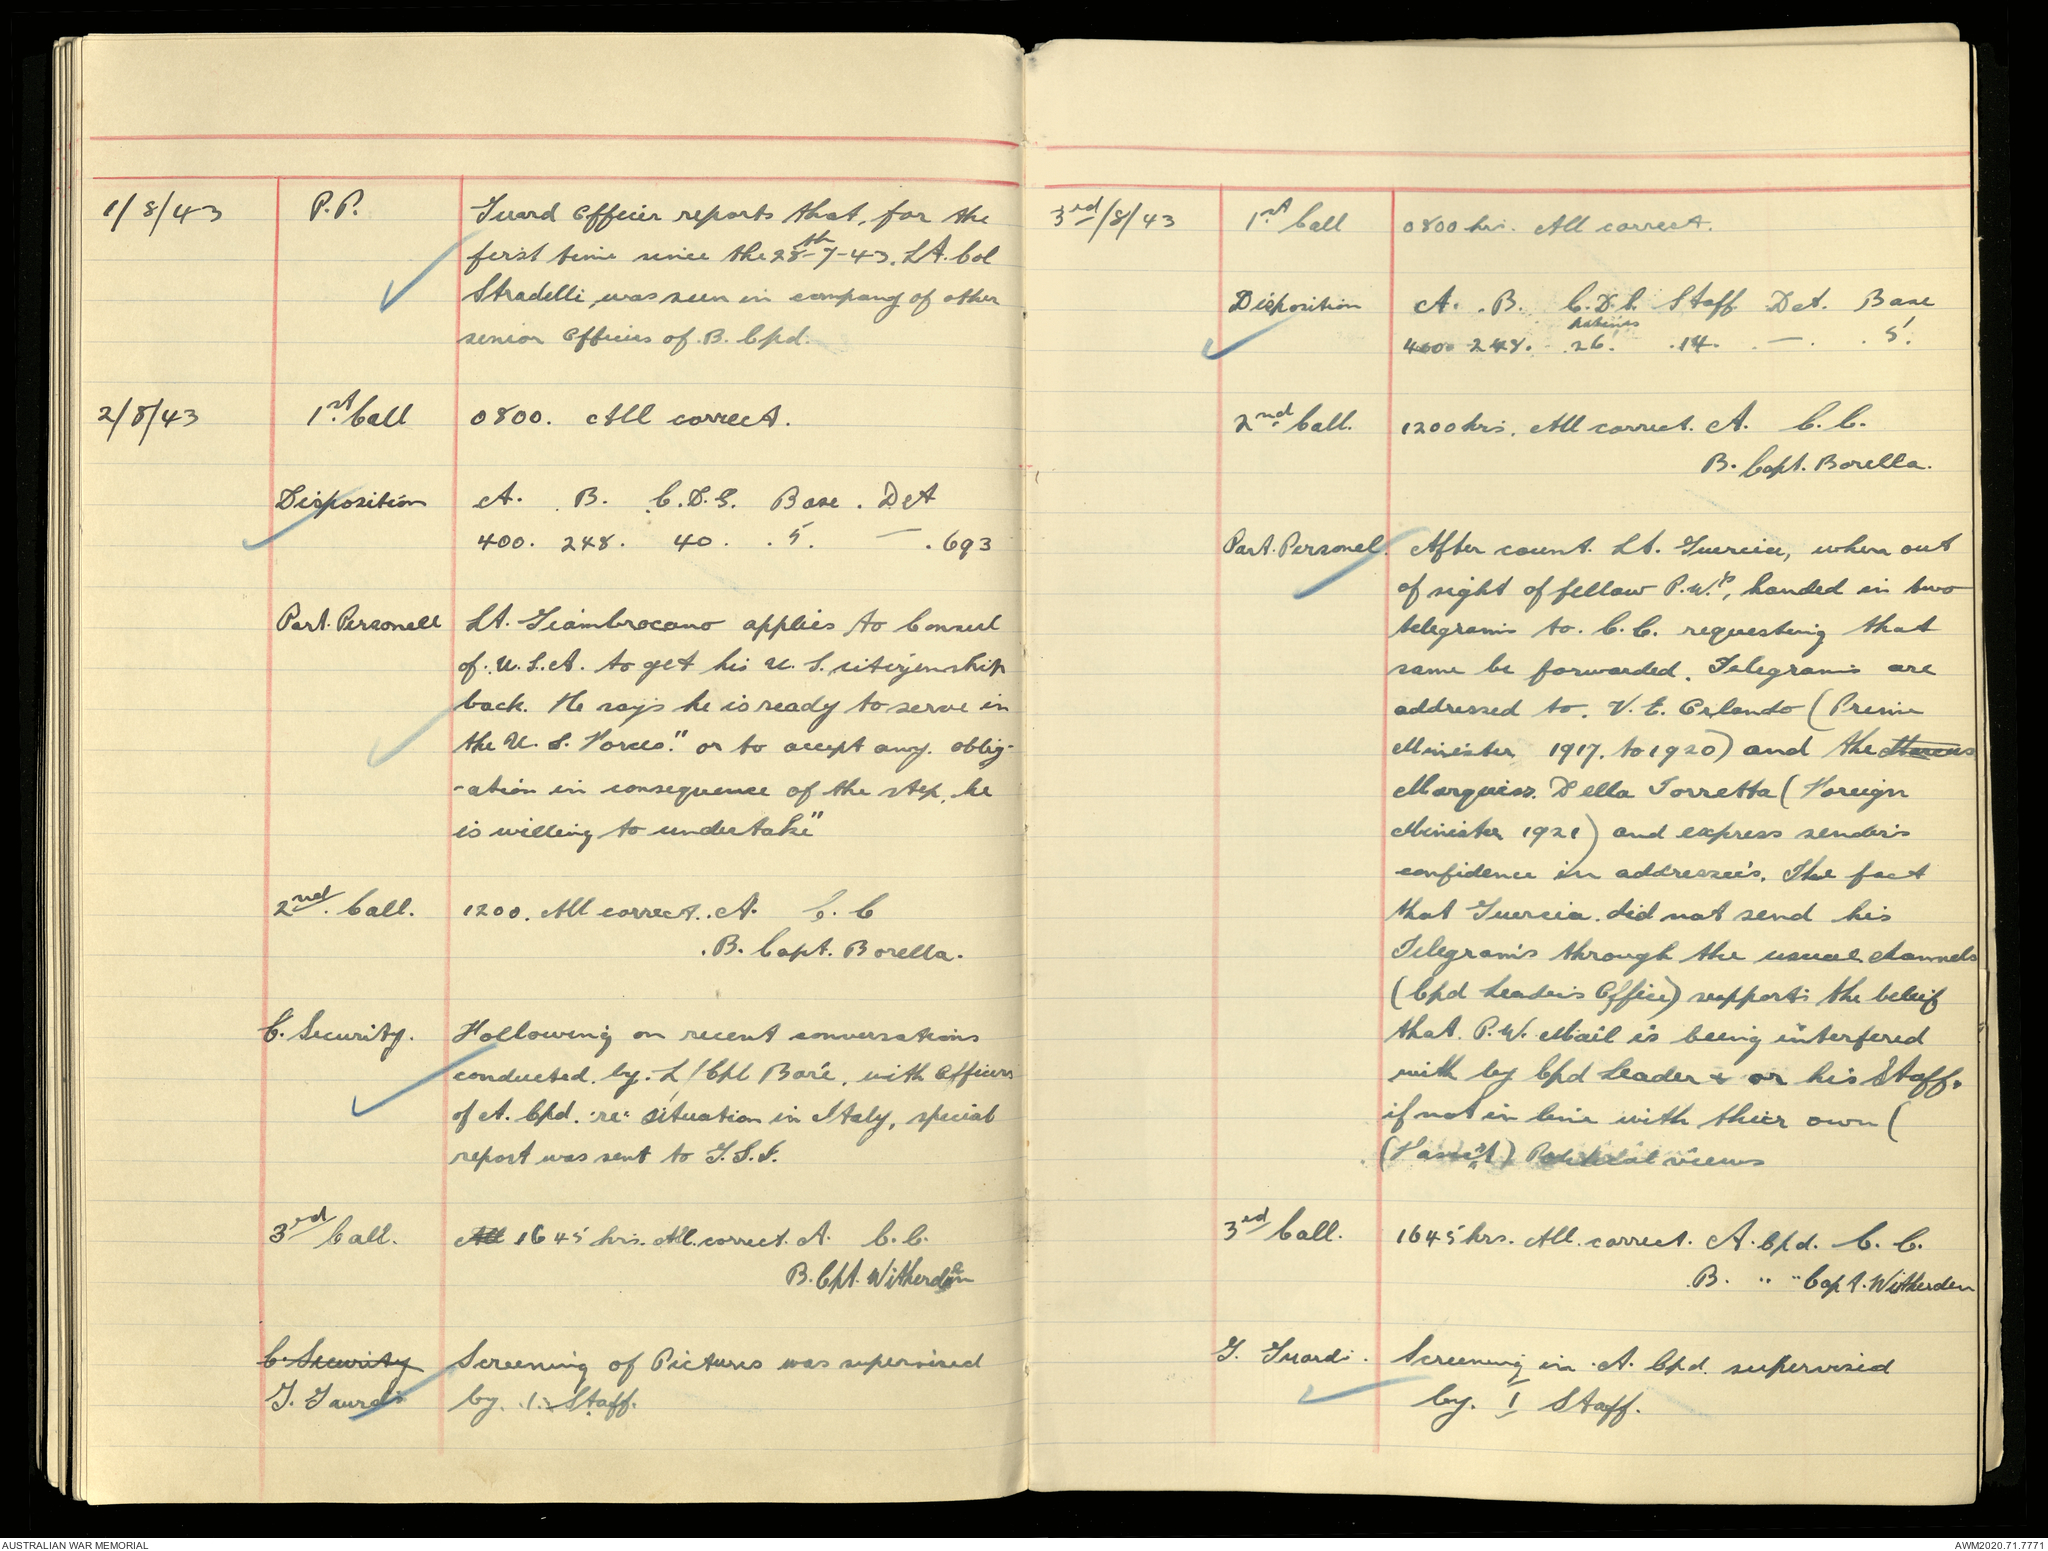 1/8/43 P.P. Guard Officer reports that, for the
first time since the 28th-7-43. Lt. Col
Stradelli, was seen in company of other
senior Officers of B. Cpd.
2/8/43 1st Call 0800. All correct.
Disposition A. B. C.D.C. Base. Det
400. 248. 40. 5. — . 693
Part. Personell Lt. Giambrocono applies to Consul
of U.S.A. to get his U.S. citizenship
back. He says he is ready to serve in
the U.S. Forces." or to accept any oblig-
-ation in consequence of the step, he
is willing to undertake"
2nd Call. 1200. All correct. A. C.C
B. Capt. Borella.
C. Security. Following on recent conversations
conducted by L/Cpl Baré, with Officers
of A. Cpd. re: situation in Italy, special
report was sent to
3rd Call. All 1645 hrs. All correct. A. C.C.
B. Cpt. Witherden
C. Security Screening of Pictures was supervised
G. by. I. Staff.
3rd/8/43 1st Call 0800 hrs. All correct.
Disposition A. B. C.D.C. Staff Det. Base
400 248. 26. 14. — . 5.
2nd Call. 1200 hrs. All correct. A. C.C.
B. Capt. Borella.
Part. Personel. After count. Lt. Guercia, when out
of sight of fellow P.W's, handed in two
telegrams to. C.C. requesting that
same be forwarded. Telegrams are
addressed to. V.E. Orlando (Prime
Minister 1917. to 1920) and the
Marquiss. Della Torretta (Foreign
Minister 1921) and express sender's
confidence in addressee's. The fact
that Guercia did not send his
Telegrams through the usual channels
(Cpd Leader's Office) supports the beleif
that. P.W. Mail is being interfered
with by Cpd Leader & or his Staff.
if not in line with thier own (
(Fascist) Political views
3rd Call. 1645 hrs. All correct. A. Cpd. C.C.
B. " " Capt. Witherden
G. Guard. Screening in A. Cpd. supervised
by. I Staff.
AUSTRALIAN WAR MEMORIAL
AWM2020.71.7771